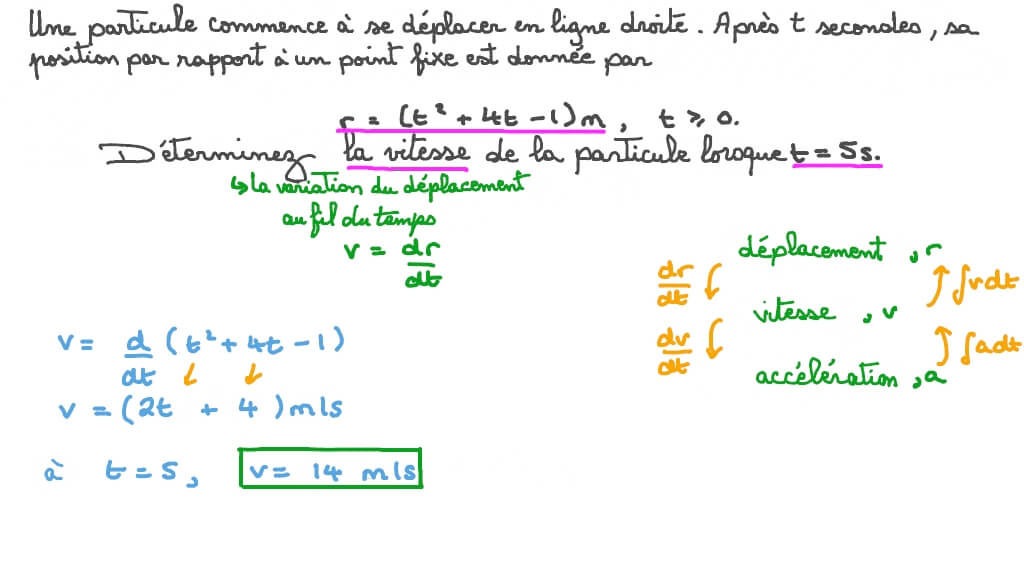 Une particule commence à se déplacer en ligne droite. Après t secondes, sa
position par rapport à un point fixe est donnée par
r = (t² + 4t - 1)m, t ⩾ 0.
Déterminez la vitesse de la particule lorsque t = 5s.
↳ la variation du déplacement
au fil du temps
v = dr/dt
déplacement, r
dr/dt ∫vdt
vitesse, v
dv/dt ∫adt
accélération, a
v = d/dt (t² + 4t - 1)
v = (2t + 4)m/s
à t = 5, v = 14 m/s